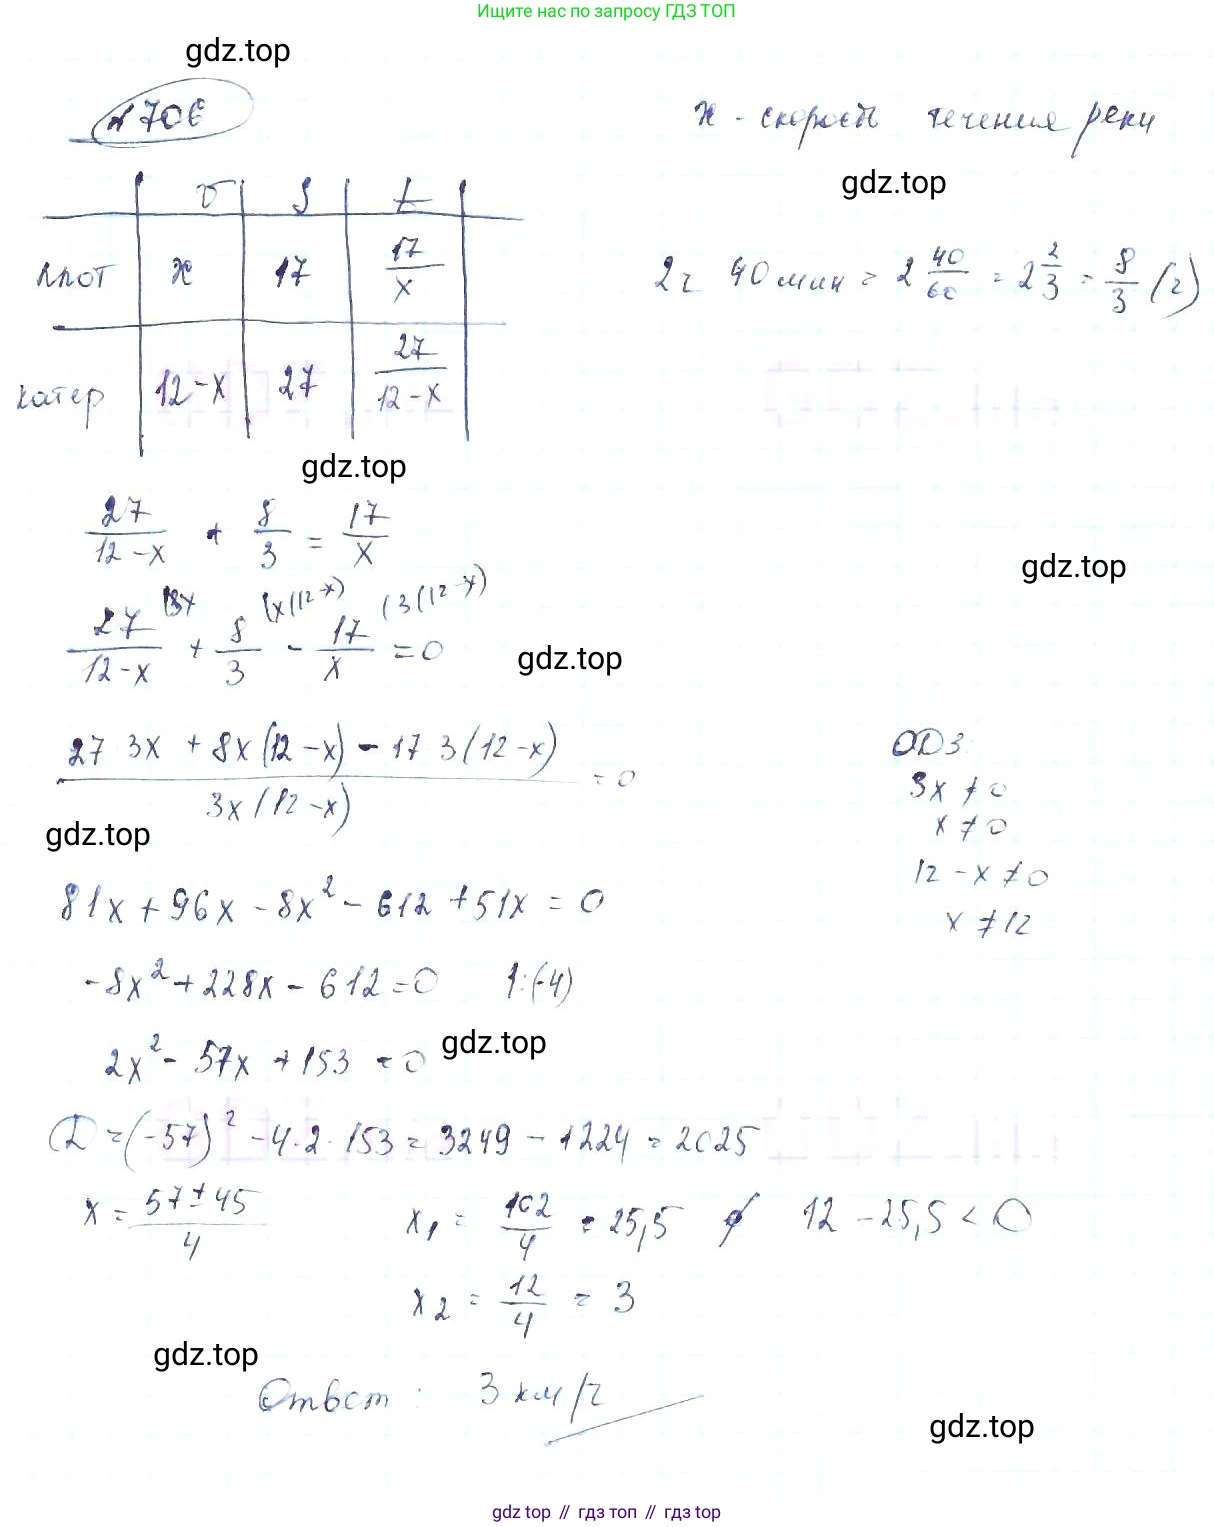 Ищите нас по запросу ГДЗ ТОП
gdz.top
№ 706
x - скорость течения реки
gdz.top
v S t
плот x 17 17/x
2ч 40 мин = 2 40/60 = 2 2/3 = 8/3 (ч)
катер 12-x 27 27/(12-x)
gdz.top
27/(12-x) + 8/3 = 17/x
gdz.top
27/(12-x) (3x + 8/3 (x(12-x) - 17/x (3(12-x) = 0
gdz.top
(27 3x + 8x(12-x) - 17 3(12-x))/(3x(12-x)) = 0
ОДЗ:
3x ≠ 0
x ≠ 0
12 - x ≠ 0
x ≠ 12
gdz.top
81x + 96x - 8x² - 612 + 51x = 0
-8x² + 228x - 612 = 0 |:(-4)
2x² - 57x + 153 = 0
gdz.top
D = (-57)² - 4·2·153 = 3249 - 1224 = 2025
x = (57±45)/4
x₁ = 102/4 = 25,5 ∉ 12 - 25,5 < 0
x₂ = 12/4 = 3
gdz.top
Ответ: 3 км/ч
gdz.top
gdz top // гдз топ // gdz top